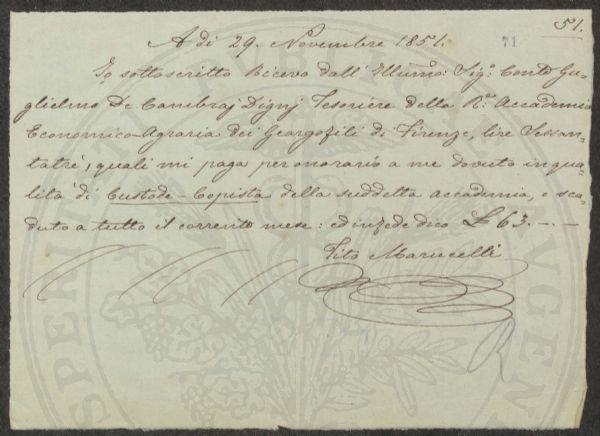 51.
A dì 29. Novembre 1851.
71
Io sottoscritto Ricevo dall'Illumo: Sigr. Conte Gu-
glielmo De Cambraj Digny Tesoriere della Rle. Accademia
Economico-Agraria dei Georgofili di Firenze, lire Sessan-
tatrè, quali mi paga per onorario a me dovuto in qua-
lità di Custode-Copista della suddetta accademia, e sca-
duto a tutto il corrente mese: ed in fede dico £ 63. -. -
Tito Marucelli